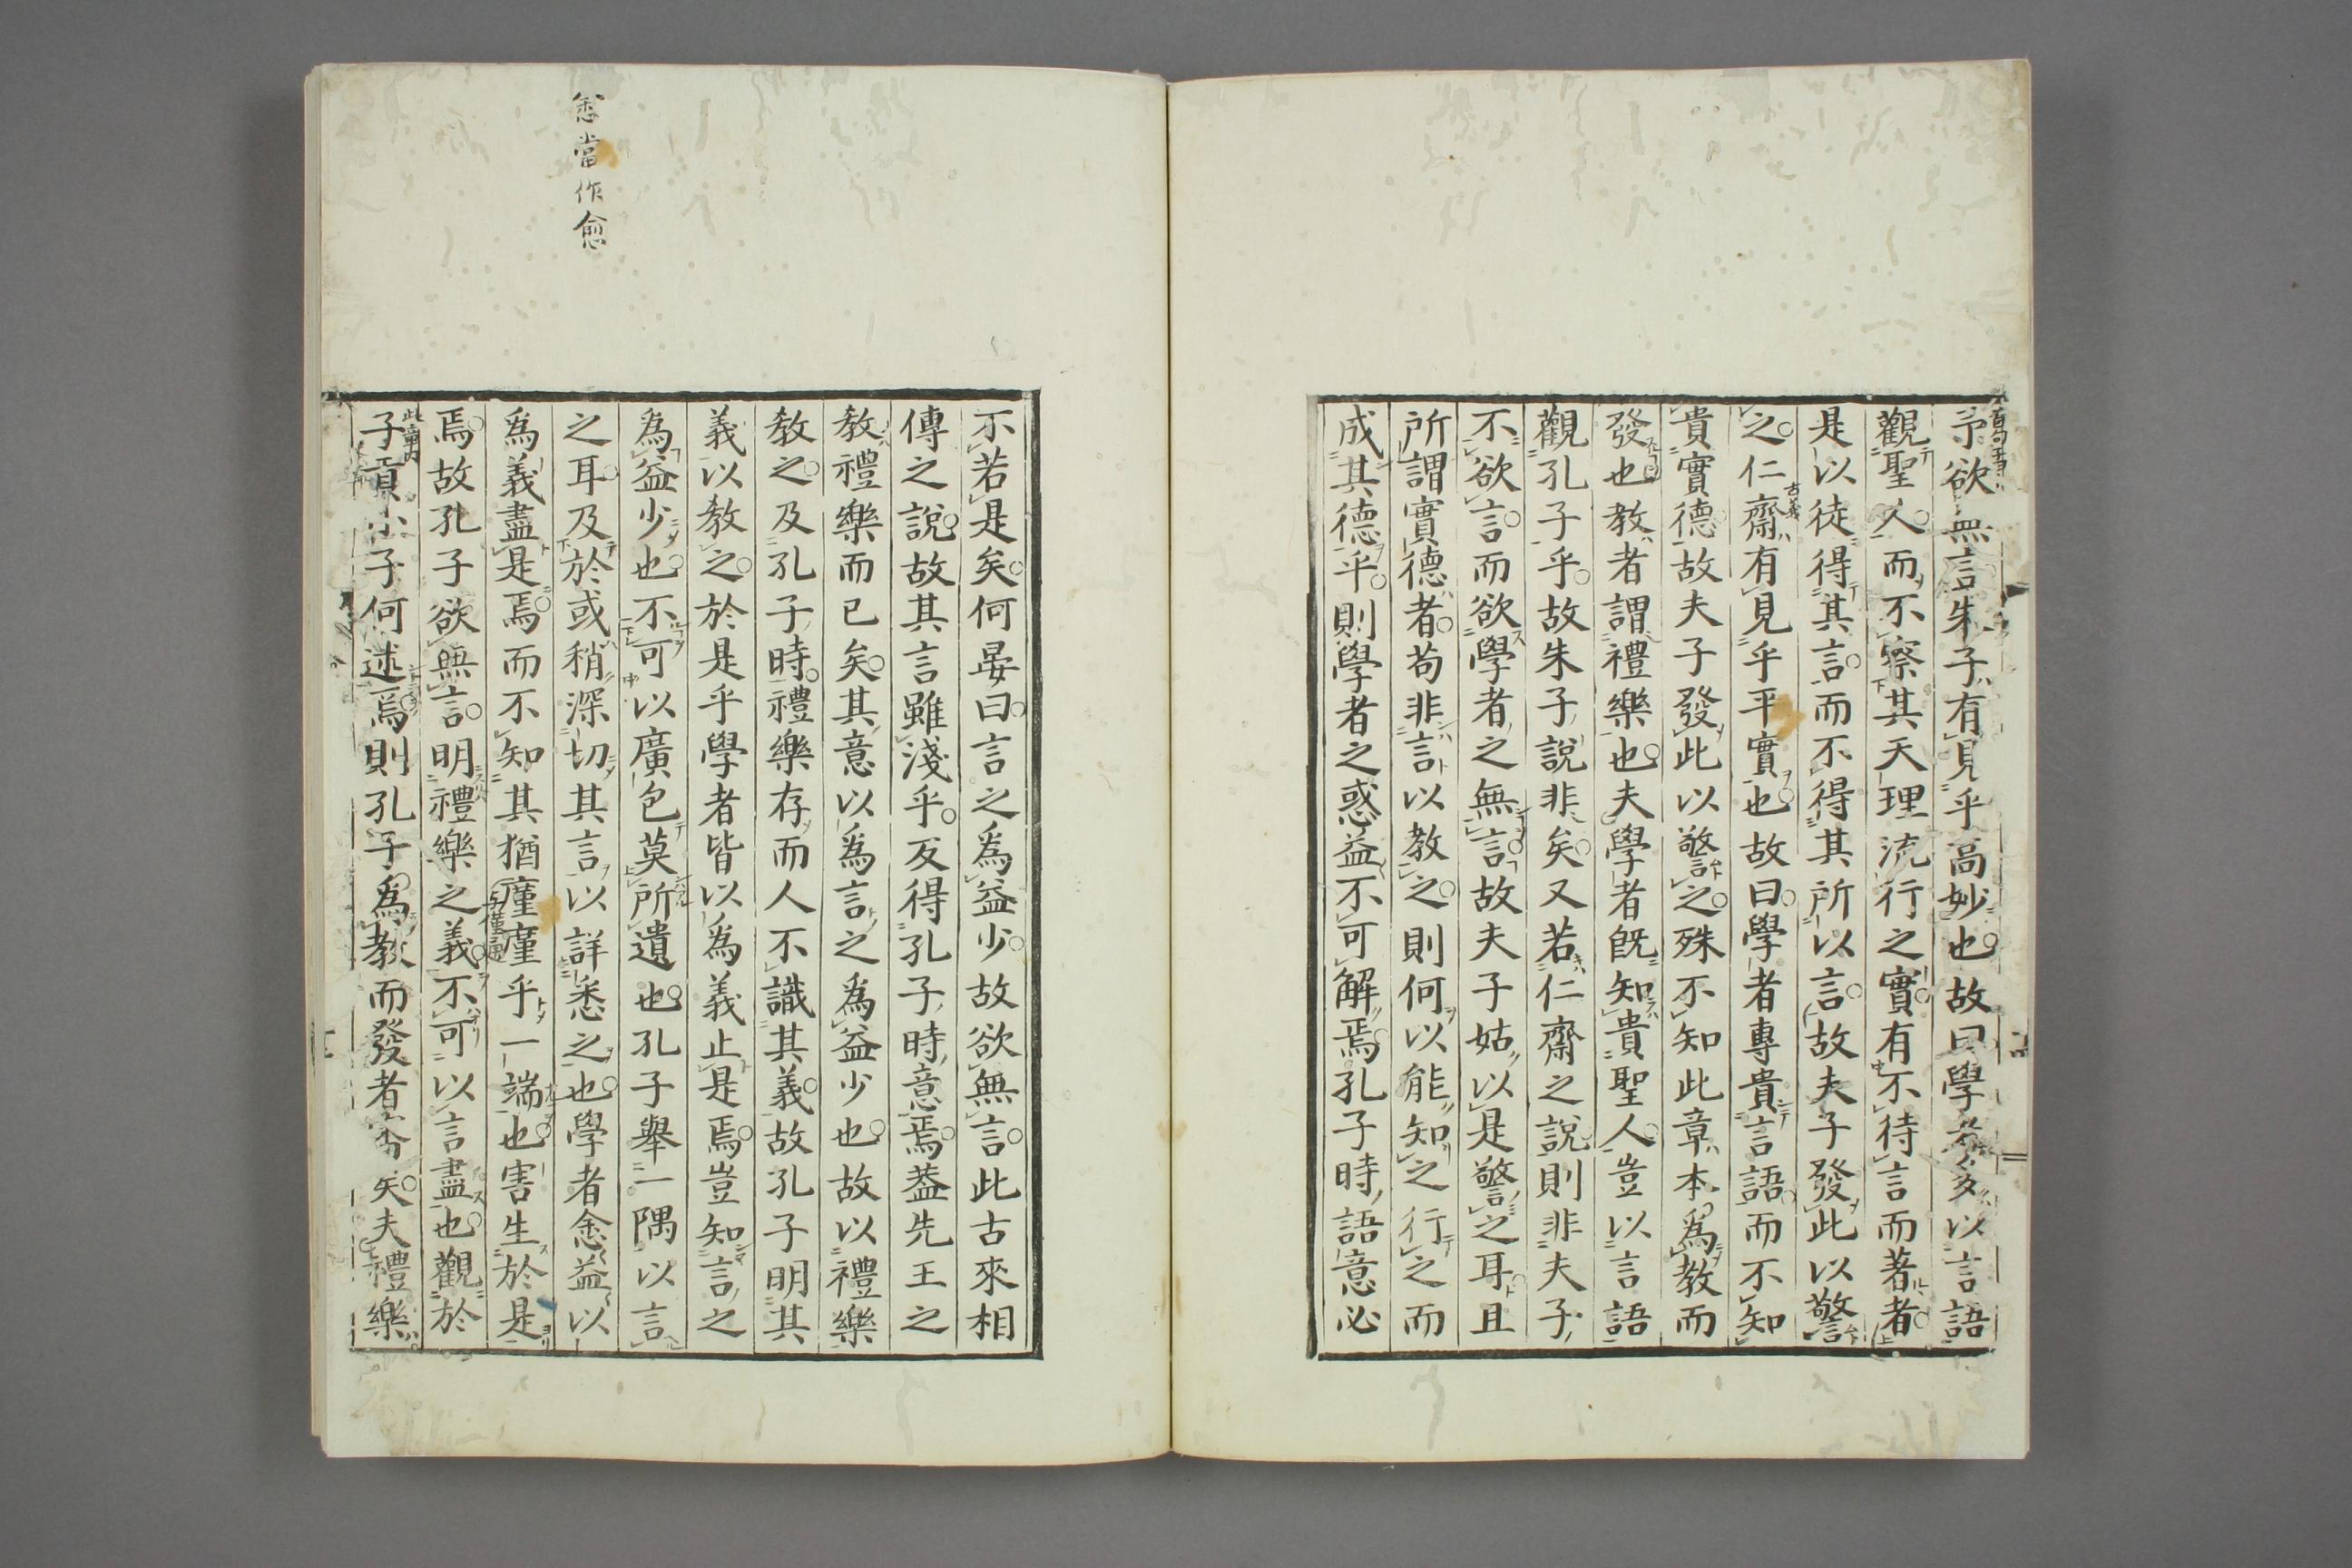 予欲無言朱子有見乎高妙也故曰學者多以言語
觀聖人而不察其天理流行之實有不待言而著者
是以徒得其言而不得其所以言故夫子發此以警
之仁齋有見乎平實也故曰學者專貴言語而不知
古義
貴實德故夫子發此以警之殊不知此章本爲教而
發也教者謂禮樂也夫學者既知貴聖人豈以言語
觀孔子乎故朱子說非矣又若仁齋之說則非夫子
不欲言而欲學者之無言故夫子姑以是警之耳且
所謂實德者苟非言以教之則何以能知之行之而
成其德乎則學者之惑益不可解焉孔子時語意必
不若是矣何晏曰言之爲益少故欲無言此古來相
傳之說故其言雖淺乎反得孔子時意焉蓋先王之
教禮樂而已矣其意以爲言之爲益少也故以禮樂
教之及孔子時禮樂存而人不識其義故孔子明其
義以教之於是乎學者皆以爲義止是焉豈知言之
爲益少也不可以廣包莫所遺也孔子舉一隅以言
之耳及於或稍深切其言以詳悉之也學者悆益以
悆當作愈
爲義盡是焉而不知其猶廑廑乎一端也害生於是
與僅通
焉故孔子欲無言明禮樂之義不可以言盡也觀於
此章內
子貢小子何述焉則孔子爲教而發者審矣夫禮樂